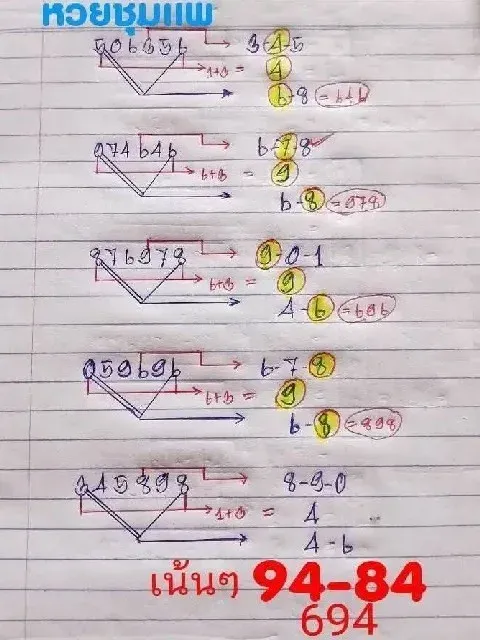 หวยชุมแพ
506656 3-4-5
1+3 = 4
6-8 =646
974646 6-7-8
6+3 = 9
6-8 =978
876978 9-0-1
6+3 = 9
4-6 =696
059696 6-7-8
6+3 = 9
6-8 =898
345898 8-9-0
1+3 = 4
4-6
เน้นๆ 94-84
694